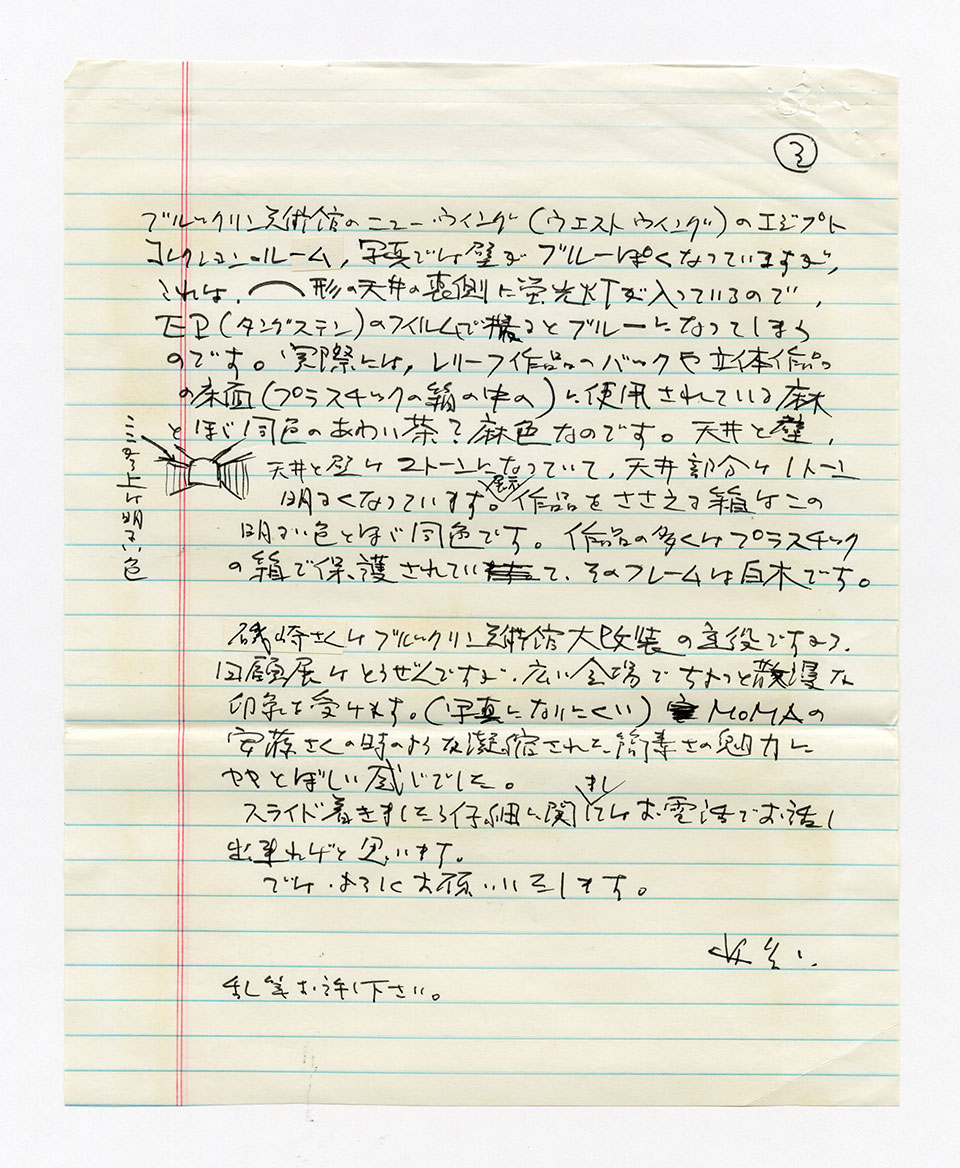 ③
ブルックリン美術館のニューウイング(ウエストウイング)のエジプト
コレクションルーム、写真では壁がブルーぽくなっていますが、
これは、⌒形の天井の裏側に蛍光灯が入っているので、
(タングステン)のフイルムで撮るとブルーになってしまう
のです。実際には、レリーフ作品のバックや立体作品
の床面(プラスチックの箱の中の)に使用されている麻
とほぼ同色のあわい茶?麻色なのです。天井と壁、
天井と壁は2トーンになっていて、天井部分は1トーン
明るくなっています。展示作品をささえる箱はこの
明るい色とほぼ同色です。作品の多くはプラスチック
の箱で保護されていて、そのフレームは白木です。
ここから上は明るい色
磯崎さんはブルックリン美術館大改装の主役ですから、
回顧展はとうぜんですが、広い会場でちょっと散漫な
印象を受けます。(写真になりにくい) MoMAの
安藤さんの時のような凝縮された、簡素さの魅力に
ややとぼしい感じでした。
スライド着きましたら仔細に関しましてはお電話でお話し
出来ればと思います。
では、よろしくお願いいたします。
乱筆お許し下さい。